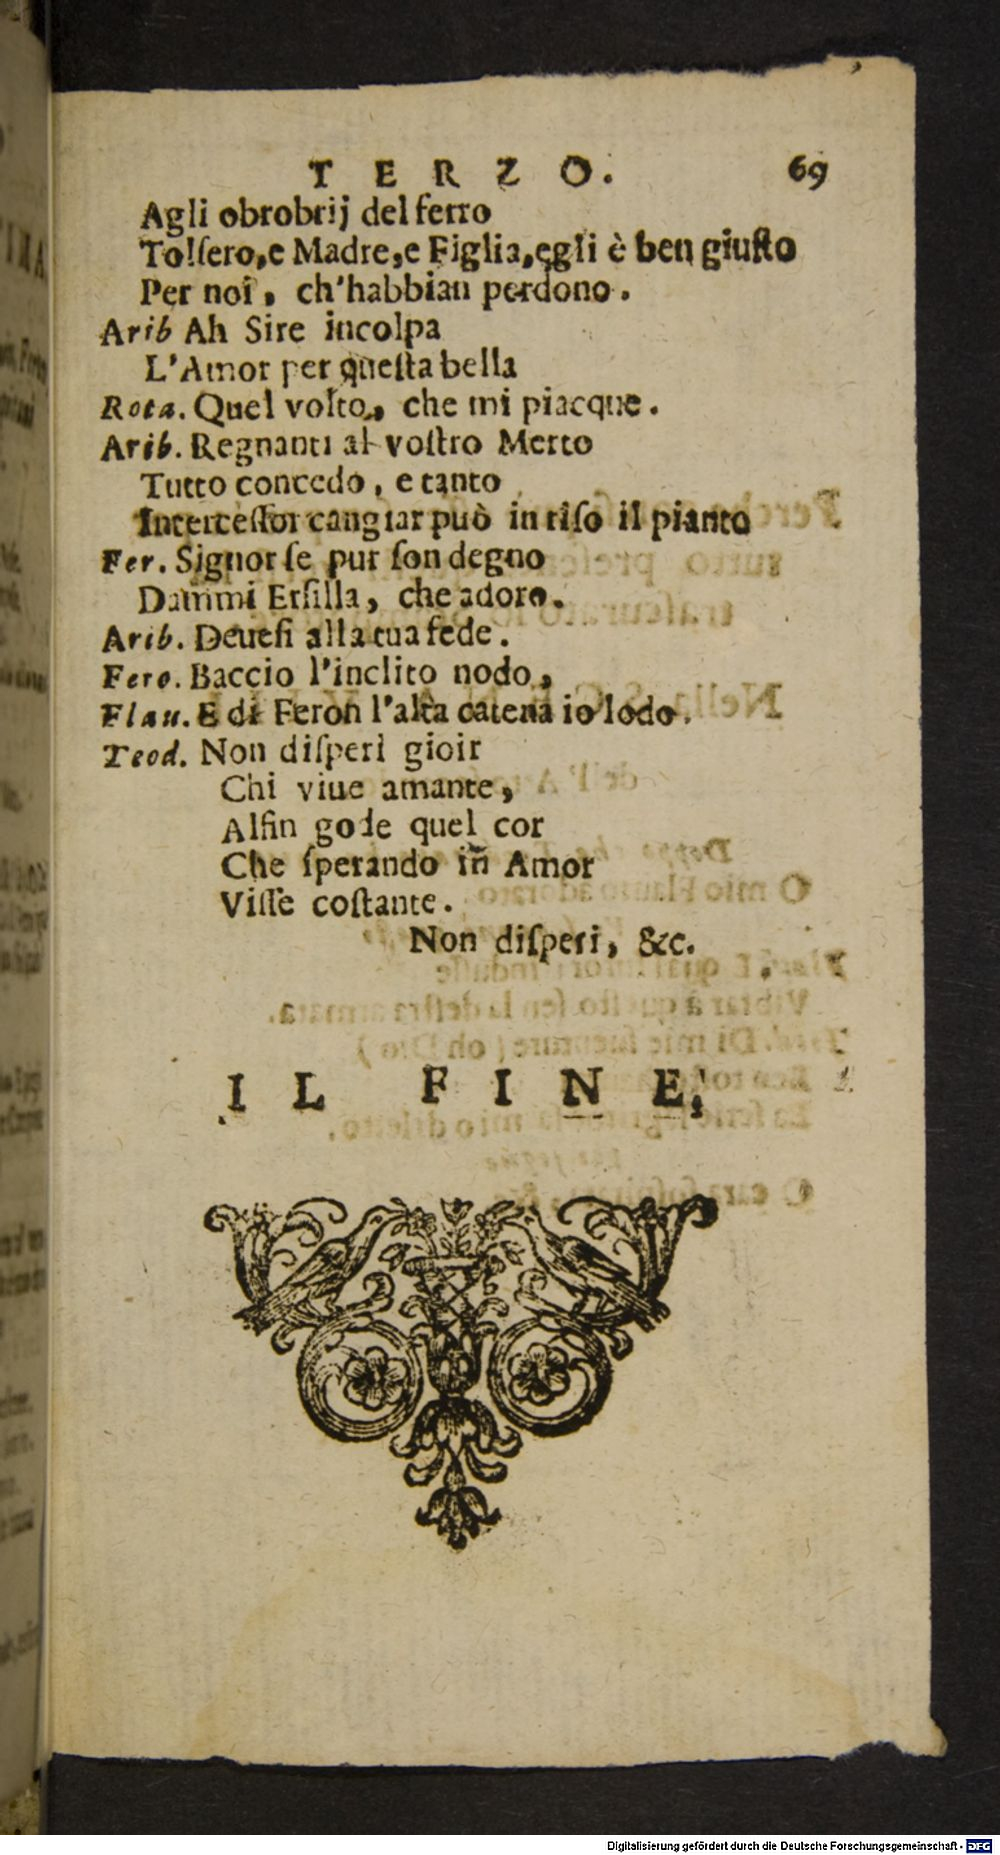 TERZO. 69
Agli obrobrij del ferro
Tolsero, e Madre, e Figlia, egli è ben giusto
Per noi, ch'habbian perdono.
Arib Ah Sire incolpa
L'Amor per questa bella
Rota. Quel volto, che mi piacque.
Arib. Regnanti al vostro Merto
Tutto concedo, e tanto
Intercessor cangiar può in riso il pianto
Fer. Signor se pur son degno
Dammi Ersilla, che adoro.
Arib. Deuesi alla tua fede.
Fero. Baccio l'inclito nodo,
Flau. E di Feron l'alta catena io lodo.
Teod. Non disperi gioir
Chi viue amante,
Alfin gode quel cor
Che sperando in Amor
Visse costante.
Non disperi, &c.
IL FINE.
Digitalisierung gefördert durch die Deutsche Forschungsgemeinschaft - DFG